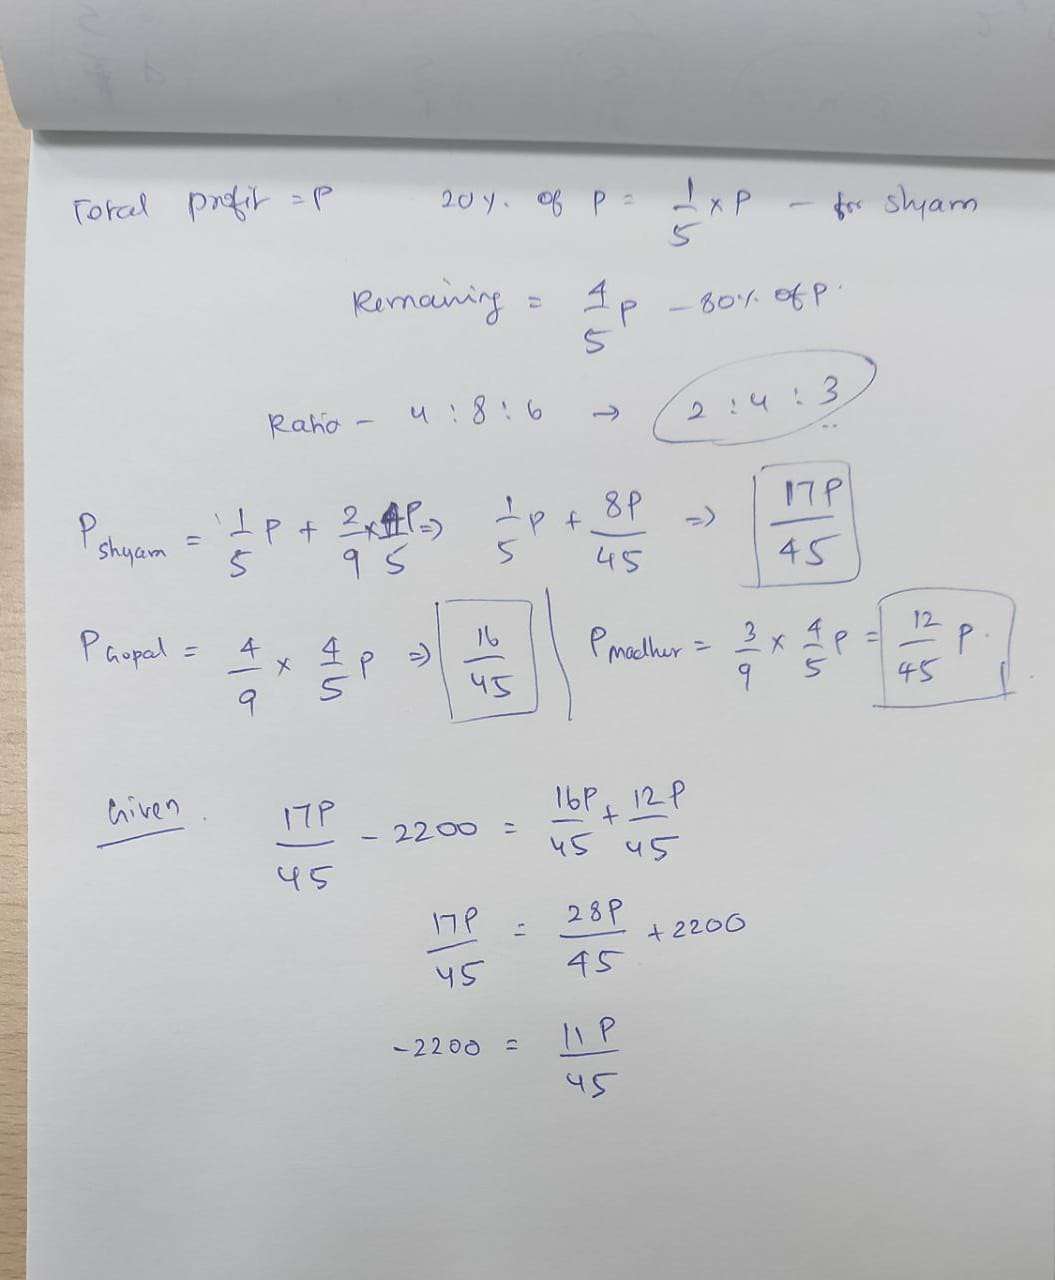 Total profit = P 20%. of P = 1/5 x P - for shyam
Remaining = 4/5 P - 80%. of P.
Ratio - 4 : 8 : 6 → 2 : 4 : 3
P shyam = 1/5 P + 2/9 x 4P/5 => 1/5 P + 8P/45 => 17P/45
P Gopal = 4/9 x 4/5 P => 16/45
P madhur = 3/9 x 4/5 P = 12/45 P.
Given. 17P/45 - 2200 = 16P/45 + 12P/45
17P/45 = 28P/45 + 2200
-2200 = 11P/45